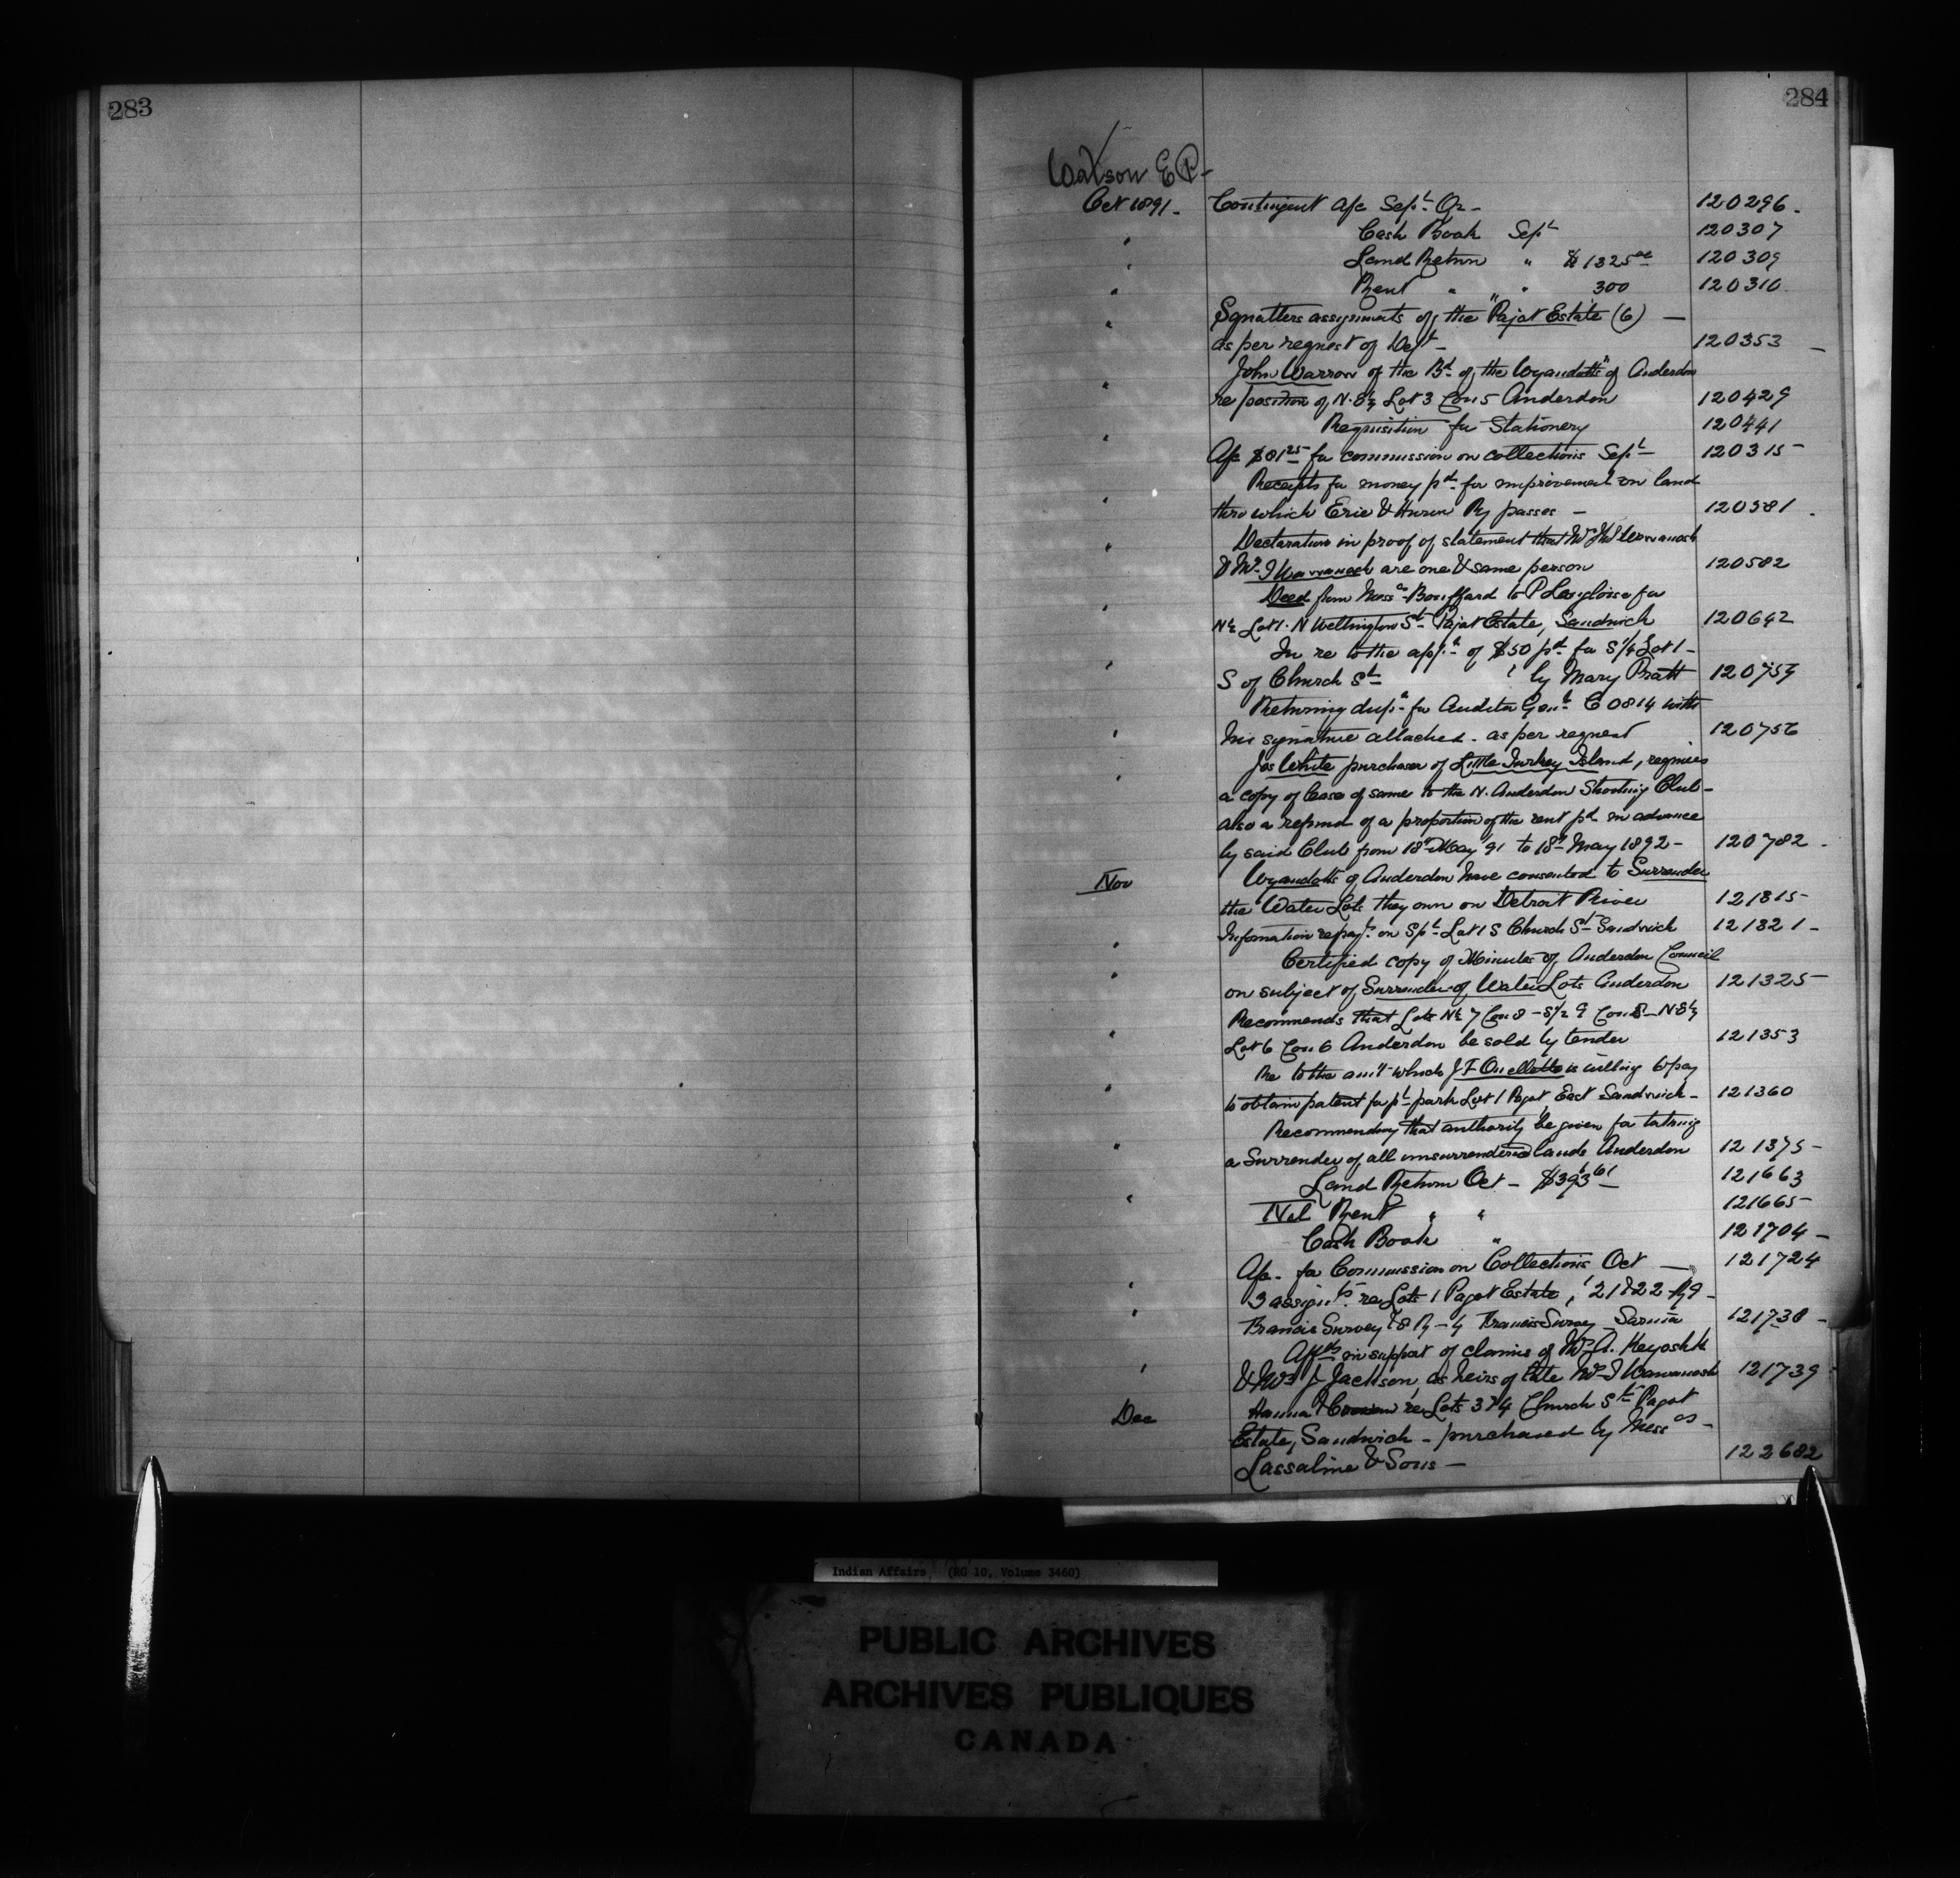 283
284
Watson E P-
Oct 1891. Contingent a/c Sept Qr - 120296.
" Cash Book Sept 120307
" Land Return " $1325 00 120309
" Rent " " 300 120310
" Squatters assignments of the "Pajot Estate (6) -
as per request of Dept - 120353
" John Warrow of the Bd of the Wyandotts" of Anderdon
re position of N. E½ Lot 3 Con 5 Anderdon 120429
" Requisition for Stationery 120441
A/c $81 25 for commission on collections Sept 120315
" Receipts for money pd for improvement on land
thro which Erie & Huron Ry passes - 120581.
" Declaration in proof of statement that
& are one & same person 120582
" Deed from Messrs Bouffard to P Langlois for
N½ Lot 1. N Wellington St Pajot Estate, Sandwich 120642
" In re to the appn of $50 pd for S¼ Lot 1 -
S of Church St by Mary Pratt 120754
" Returning dupe for Auditor Genl C 0814 with
his signature attached - as per request 120756
" Jos White purchaser of Little Turkey Island, requires
a copy of lease of same to the N. Anderdon Shooting Club -
also a refund of a proportion of the rent pd in advance
by said Club from 18th May '91 to 18th May 1892 - 120782.
Nov Wyandotts of Anderdon have consented to Surrender
the Water Lots they own on Detroit River 121315
" Information on Lot 1 S Church St Sandwich 121321 -
" Certified copy of Minutes of Anderdon Council
on subject of Surrender of Water Lots Anderdon 121325
" Recommends that Lots N½ 7 Con 8 - S½ 9 Con 8 - N E½
Lot 6 Con 6 Anderdon be sold by tender 121353
" Re to the amt which J F Ouellette is willing to pay
to obtain patent for pt park Lot 1 Pajot East Sandwich - 121360
" Recommending that authority be given for taking
a Surrender of all unsurrendered lands Anderdon 121375 -
" Land Return Oct - $393 61 121663
Nil Rent " " 121665
Cash Book " 121704 -
A/c - for Commission on Collections Oct - 121724
" 3 assignts re Lots 1 Pagot Estate, 21 & 22
Francis Survey Francis Survey Sarnia 121738 -
" Affts in support of claims of Mrs A. Keyoshk
& Mrs J Jackson, as heirs of late 121739
Dec Hanna & re Lots 3 & 4 Church St Pagot
Estate, Sandwich - purchased by Messrs -
Lassaline & Sons - 122682
Indian Affairs (RG 10, Volume 3460)
PUBLIC ARCHIVES
ARCHIVES PUBLIQUES
CANADA